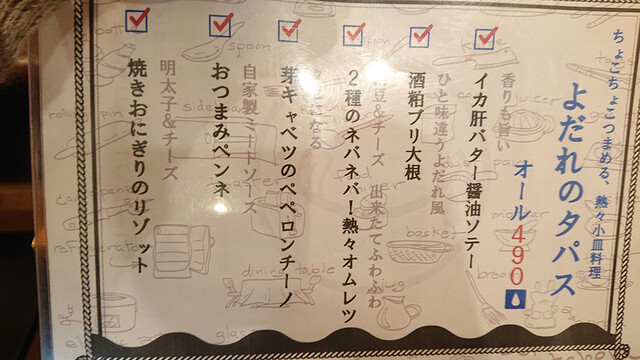 ちょこちょこつまめる、熱々小皿料理
よだれのタパス
オール490
香りも旨い
イカ肝バター醤油ソテー
ひと味違うよだれ風
酒粕ブリ大根
納豆&チーズ 出来たてふわふわ
2種のネバネバー熱々オムレツ
になる
芽キャベツのペペロンチーノ
自家製ミートソース
おつまみペンネ
明太子&チーズ
焼きおにぎりのリゾット
spoon
basket
dining table
jug